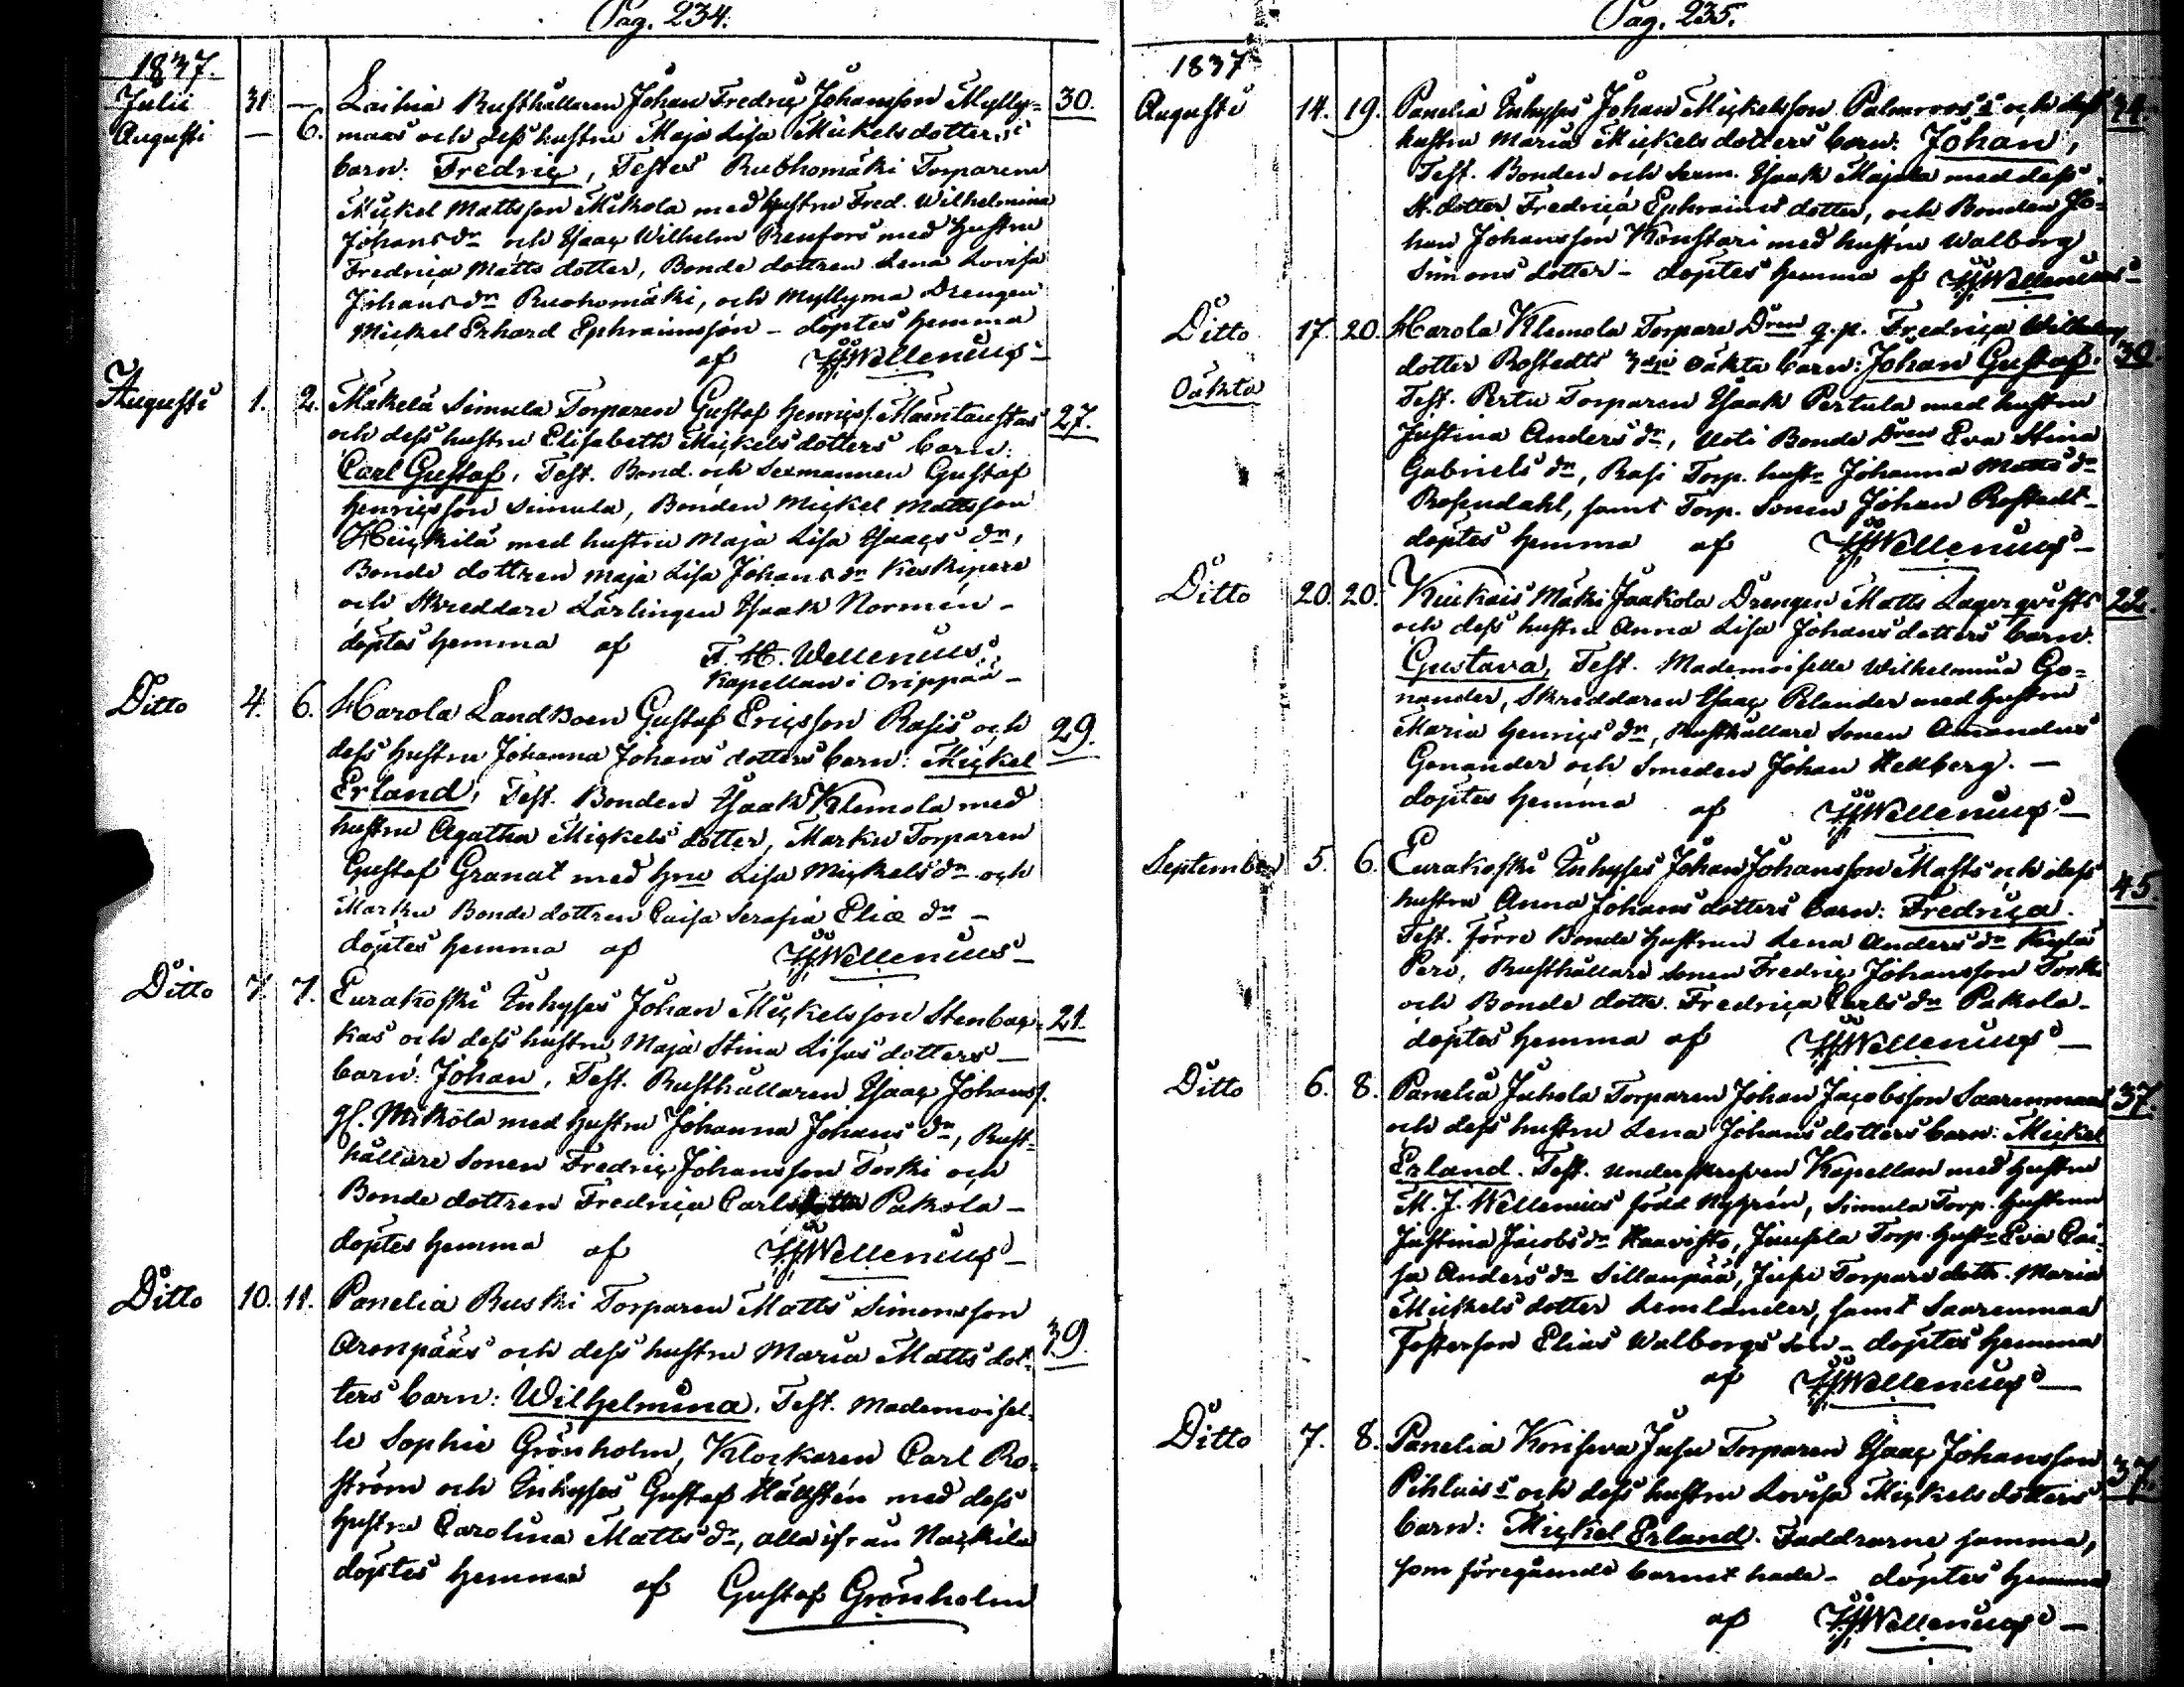 Pag. 234.
1837.
Julii 31. — Laihia Rusthållaren Johan Fredriç Johansson Mylly= 30.
Augusti — 6. maas och dess hustru Maja Lisa Mickelsdotters
barn: Fredriç, Testes Ruohomäki Torparen
Mickel Mattsson Mikola med hustru Fred. Wilhelmina
Johans dr och Isaaç Wilhelm Renfors med hustru
Fredriça Matts dotter, Bonde dottren Lena Lovisa
Johans dr Ruohomäki, och Myllyma Drengen
Mickel Erhard Ephraimsson – döptes hemma
af Wellenius –
Augusti 1. 2. Mäkelä Simula Torparen Gustaf Henriçs. Mäntaustas 27.
och dess hustru Elisabeth Mickelsdotters barn:
Carl Gustaf, Test. Bond. och Sexmannen Gustaf
Henriçsson Simula, Bonden Mickel Mattsson
Heiçkilä med hustru Maja Lisa Isaaçs dr,
Bonde dottren Maja Lisa Johans dr Keskipere
och Skreddare Lärlingen Isaak Normén –
döptes hemma af F. H. Wellenius,
Kapellan i Orippää –
Ditto 4. 6. Harola Landboen Gustaf Eriçsson Rasis och 29.
dess hustru Johanna Johans dotters barn: Miçkel
Erland, Test. Bonden Isaak Klemola med
hustru Agatha Miçkels dotter, Marku Torparen
Gustaf Granat med hru Lisa Miçkels dr och
Marku Bonde dottren Caisa Serafia Eliæ dr –
döptes hemma af Wellenius –
Ditto 7. 7. Eurakoski Inhyses Johan Miçkelsson Stenbaç= 21.
kas och dess hustru Maja Stina Lisas dotters –
barn: Johan, Test. Rusthållaren Isaaç Johans s.
gl. Mikola med hustru Johanna Johans dr, Rust=
hållare Sonen Fredriç Johansson Torki och
Bonde dottren Fredriça Carls dotter Pakola –
döptes hemma af Wellenius –
Ditto 10. 11. Panelia Ruski Torparen Matts Simonsson
Aronpääs och dess hustru Maria Matts dot= 39.
ters barn: Wilhelmina. Test. Mademoisel=
le Sophie Grönholm, Klockaren Carl Ro=
ström och Inhyses Gustaf Hällstén med dess
hustru Carolina Matts dr, alla ifrån Naçkila
döptes hemma af Gustaf Grönholm
Pag. 235.
1837
Augusti 14. 19. Panelia Inhyses Johan Miçkelsson Palmroos's och dess 31.
hustru Maria Miçkels dotters barn: Johan,
Test. Bonden och Sexm. Isaak Majala med dess
H. dotter Fredriça Ephraims dotter, och Bonden Jo=
han Johansson Konstari med hustru Walborg
Simons dotter – döptes hemma af Wellenius –
Ditto 17. 20. Harola Klemola Torpare Dren q.p. Fredriça Wilhelms
dotter Rostedts 3dje oäkta barn: Johan Gustaf. 30.
Oäkta Test. Pertu Torparen Isaak Pertula med hustru
Justina Anders dr, Uoti Bonde Dren Eva Stina
Gabriels dr, Rasi Torp. hustr. Johanna Matts dr
Rosendahl, samt Torp. Sonen Johan Rostedt –
döptes hemma af Wellenius –
Ditto 20. 20. Kiukais Mäki Jaakola Drengen Matts Lagerqvists 22.
och dess hustru Anna Lisa Johans dotters barn.
Gustava, Test. Mademoiselle Wilhelmina Go=
nander, Skreddaren Isaaç Pelander med hustru
Maria Henriçs dr, Rusthållare Sonen Amandus
Gonander och Smeden Johan Hedberg. –
döptes hemma af Wellenius –
September 5. 6. Eurakoski Inhyses Johan Johansson Masts och dess
hustru Anna Johans dotters barn: Fredriça. 45.
Test. Förre Bonde hustrun Lena Anders dr Kylä
Pere, Rusthållare Sonen Fredriç Johansson Torki
och Bonde dottr. Fredriça Carls dr Pakola –
döptes hemma af Wellenius –
Ditto 6. 8. Panelia Juhola Torparen Johan Jaçobsson Saarenmaas 37
och dess hustru Lena Johans dotters barn: Miçkel
Erland. Test. Underskrefven Kapellan med hustru
M. J. Wellenius född Nyprén, Simula Torp. hustrun
Justina Jacobs dr Haavisto, Juusela Torp. hustr. Eva Cai=
sa Anders dr Sillanpää, Jusu Torpare dottr. Maria
Mickels dotter Lemlander, samt Saarenmaa
Fosterson Elias Walborgs son – döptes hemma
af Wellenius –
Ditto 7. 8. Panelia Koriseva Jusu Torparen Isaaç Johansson 37.
Pihluis's och dess hustru Lovisa Miçkels dotters
barn: Miçkel Erland. Faddrarne samma,
som föregående barnet hade – döptes hemma
af Wellenius –